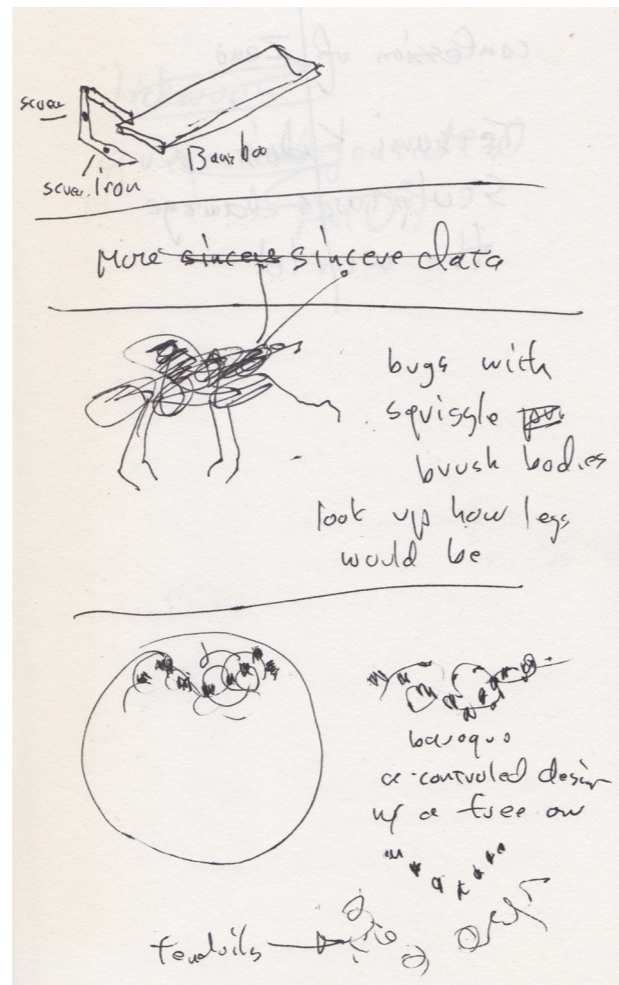 screw
Bamboo
screw. Iron
More sincere sincere data
bugs with
squiggle
brush bodies
look up how legs
would be
baroque
a controled design
w/ a free on
tendrils